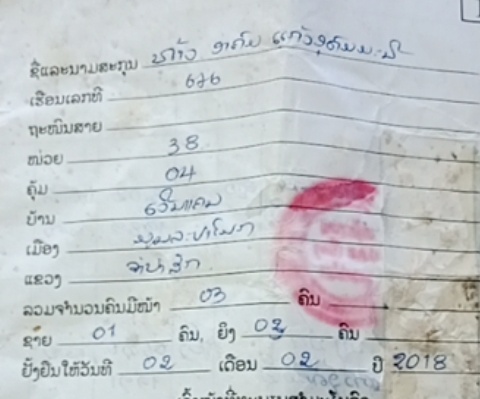 ຊື່ແລະນາມສະກຸນ ທ້າວ ອາຄົມ ແກ້ວອຸດົມມະນີ
ເຮືອນເລກທີ 676
ຖະໜົນສາຍ
ໜ່ວຍ 38
ຄຸ້ມ 04
ບ້ານ
ເມືອງ ມູນລະປາໂມກ
ແຂວງ ຈຳປາສັກ
ລວມຈຳນວນຄົນມີໜ້າ 03 ຄົນ
ຊາຍ 01 ຄົນ, ຍິງ 02 ຄົນ
ຢັ້ງຢືນໃຫ້ວັນທີ 02 ເດືອນ 02 ປີ 2018